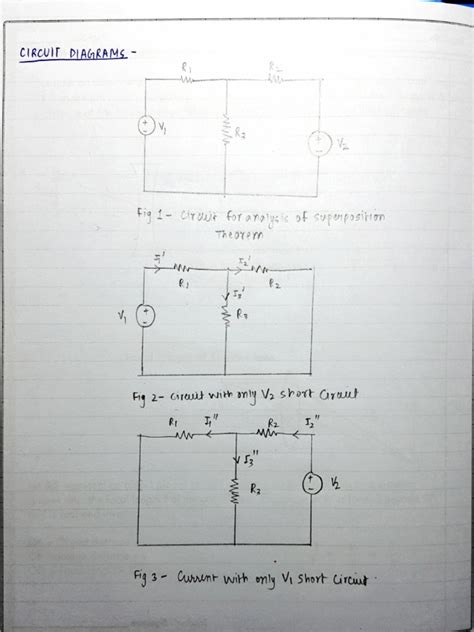 CIRCUIT DIAGRAMS -
R1 R2
V1 R3 V2
Fig 1 - Circuit for analysis of superposition
Theorem
I1' I2'
R1 R2
I3'
V1 R3
Fig 2 - Circuit with only V2 short Circuit
R1 I1" R2 I2"
I3"
R3 V2
Fig 3 - Current with only V1 short Circuit.